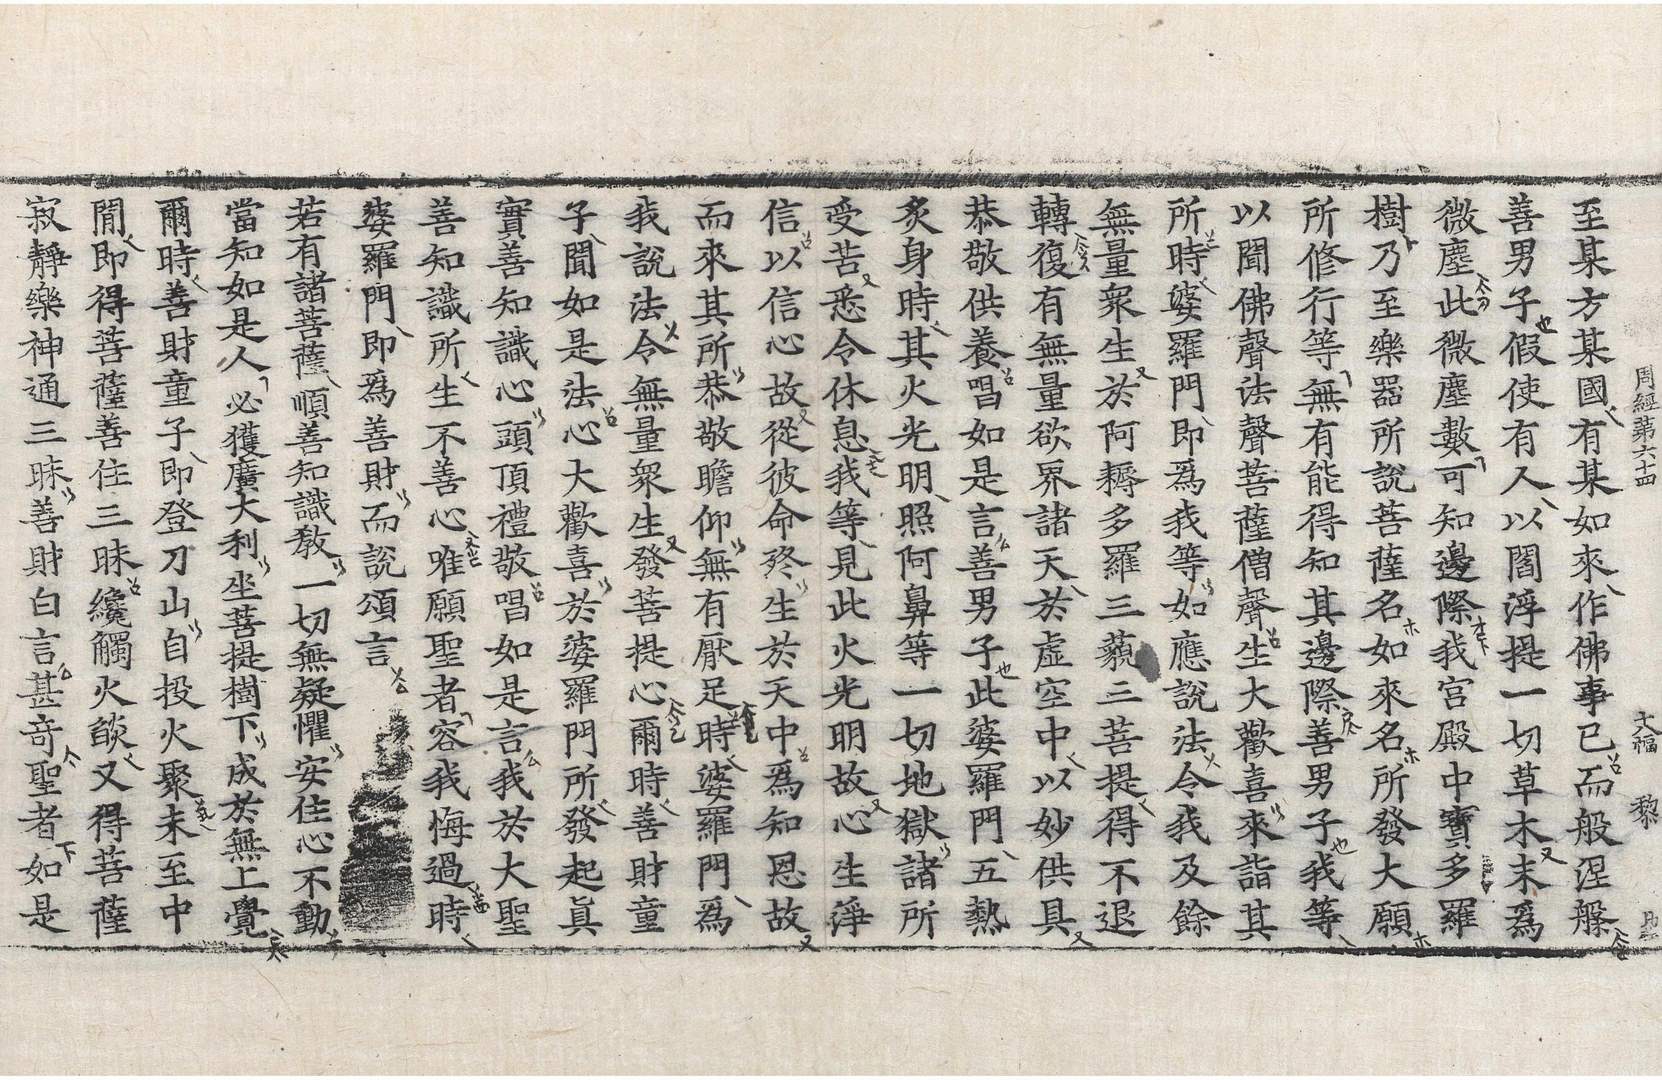 周經第六十四 文幅 黎
至某方某國有某如來作佛事已而般涅槃
善男子假使有人以閻浮提一切草木末爲
微塵此微塵數可知邊際我宮殿中寶多羅
樹乃至樂器所說菩薩名如來名所發大願
所修行等無有能得知其邊際善男子我等
以聞佛聲法聲菩薩僧聲生大歡喜來詣其
所時婆羅門即爲我等如應說法令我及餘
無量衆生於阿耨多羅三藐三菩提得不退
轉復有無量欲界諸天於虛空中以妙供具
恭敬供養唱如是言善男子此婆羅門五熱
炙身時其火光明照阿鼻等一切地獄諸所
受苦悉令休息我等見此火光明故心生淨
信以信心故從彼命終生於天中爲知恩故
而來其所恭敬瞻仰無有厭足時婆羅門爲
我說法令無量衆生發菩提心爾時善財童
子聞如是法心大歡喜於婆羅門所發起眞
實善知識心頭頂禮敬唱如是言我於大聖
善知識所生不善心唯願聖者容我悔過時
婆羅門即爲善財而說頌言
若有諸菩薩順善知識敎一切無疑懼安住心不動
當知如是人必獲廣大利坐菩提樹下成於無上覺
爾時善財童子即登刀山自投火聚未至中
間即得菩薩善住三昧纔觸火燄又得菩薩
寂靜樂神通三昧善財白言甚奇聖者如是